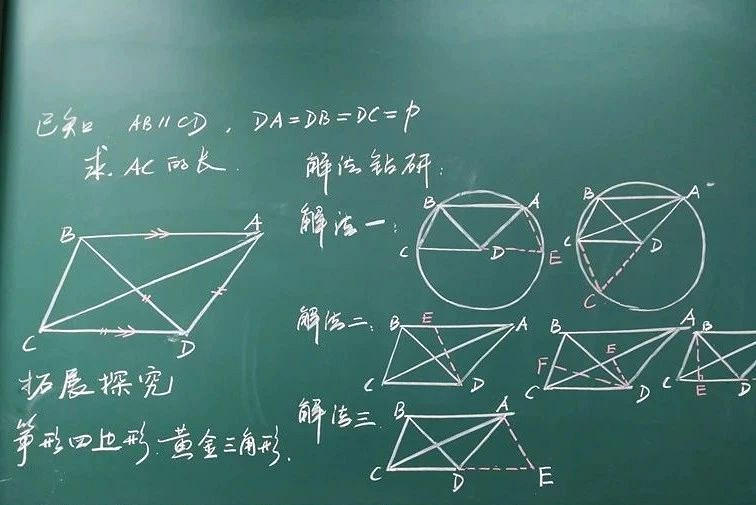 已知 AB∥CD, DA=DB=DC=p
求 AC的长. 解法钻研:
解法一:
B A
C D E
B A
C D
C
B A
C D
解法二:
B E A
C D
B A
F E
C D
A B
C E D
拓展探究
筝形四边形. 黄金三角形.
解法三.
B A
C D E